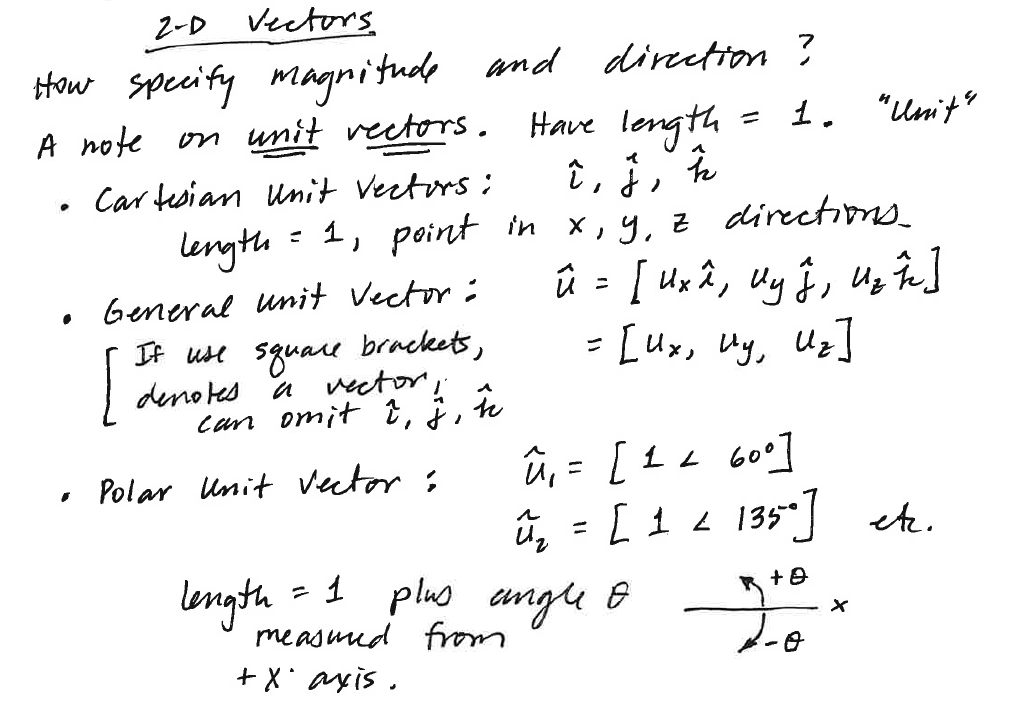 2-D Vectors
How specify magnitude and direction?
A note on unit vectors. Have length = 1. "Unit"
• Cartesian Unit Vectors: î, ĵ, k̂
length = 1, point in x, y, z directions
• General unit Vector: û = [uₓî, u_yĵ, u_zk̂]
[If use square brackets, = [uₓ, u_y, u_z]
denotes a vector,
can omit î, ĵ, k̂
• Polar Unit Vector: û₁ = [1 ∠ 60°]
û₂ = [1 ∠ 135°] etc.
length = 1 plus angle θ +θ x
measured from -θ
+x axis.